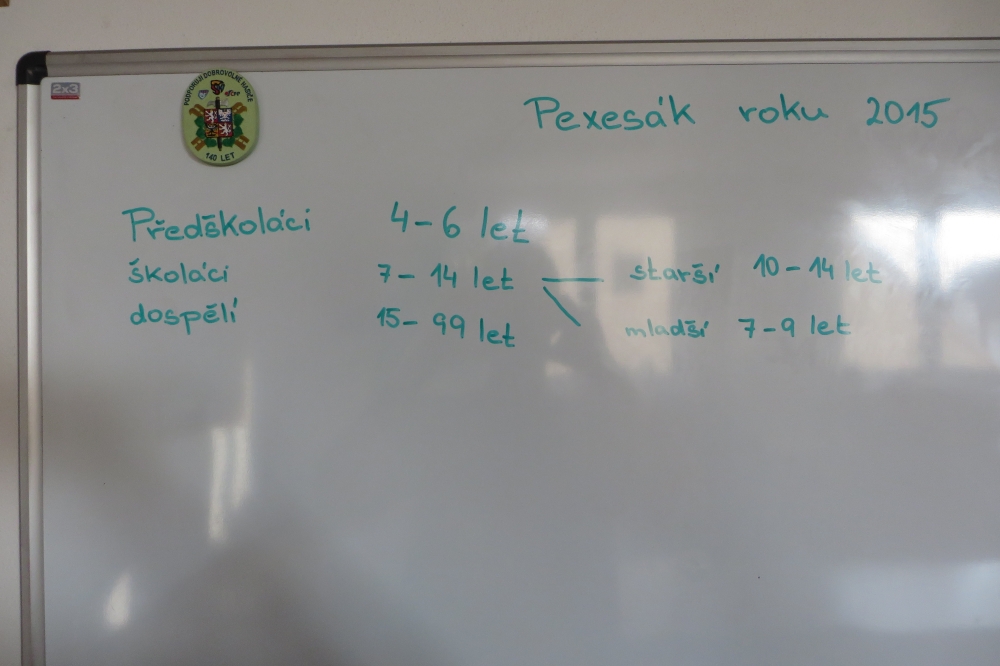 2x3
PODPORUJI DOBROVOLNÉ HASIČE
140 LET
Pexesák roku 2015
Předškoláci 4-6 let
školáci 7-14 let starší 10-14 let
dospělí 15-99 let mladší 7-9 let